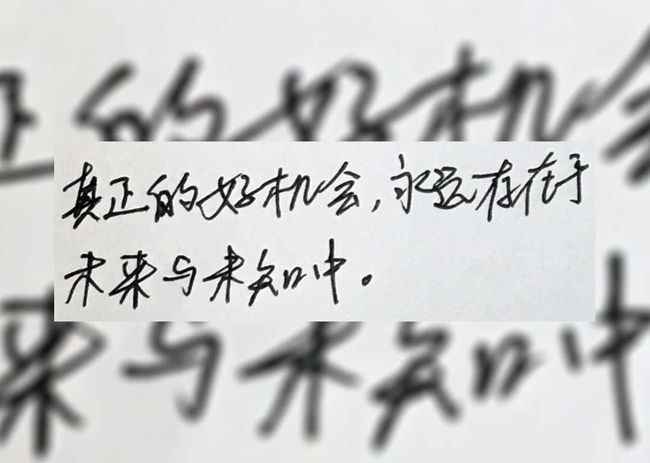 真正的好机会,永远存在于
未来与未知中。